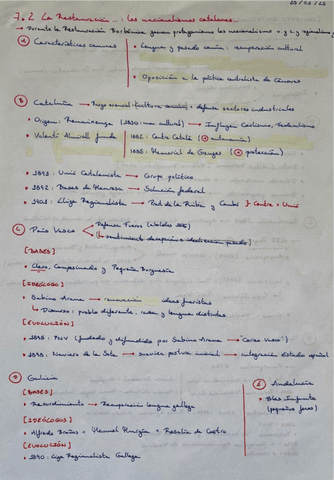 7.2 La Restauración: los nacionalismos catalanes
→ Durante la Restauración Borbónica ganan protagonismo los nacionalismos
A Características comunes
• Lengua y pasado común: recuperación cultural
• Oposición a la política centralista de Cánovas
B Cataluña → defensa sectores industriales
• Origen: Renaixença (1830: mov. cultural) → Influyen Carlismo, Federalismo
• Valentí Almirall funda
1882: Centre Català (autonomía)
1885: Memorial de Greuges (protección)
• 1891: Unió Catalanista → Grupo político
• 1892: Bases de Manresa → Solución federal
• 1901: Lliga Regionalista → Prat de la Riba y Cambó
C País Vasco
Defensa Fueros (abolidos 1876)
[BASES]
• Clero, Campesinado y Pequeña Burguesía
[IDEÓLOGO]
• Sabino Arana → renovación ideas fueristas
↳ Discurso: pueblo diferente, raza y lengua distintas
[EVOLUCIÓN]
• 1895: PNV (fundado y difundido por Sabino Arana →
• 1898: Naviero de la Sota → suaviza postura inicial → integración Estado español
D Galicia
[BASES]
• Rexurdimiento → Recuperación lengua gallega
[IDEÓLOGOS]
• Alfredo Brañas + Manuel Murguía + Rosalía de Castro
[EVOLUCIÓN]
• 1890: Liga Regionalista Gallega
E Andalucía
• Blas Infante